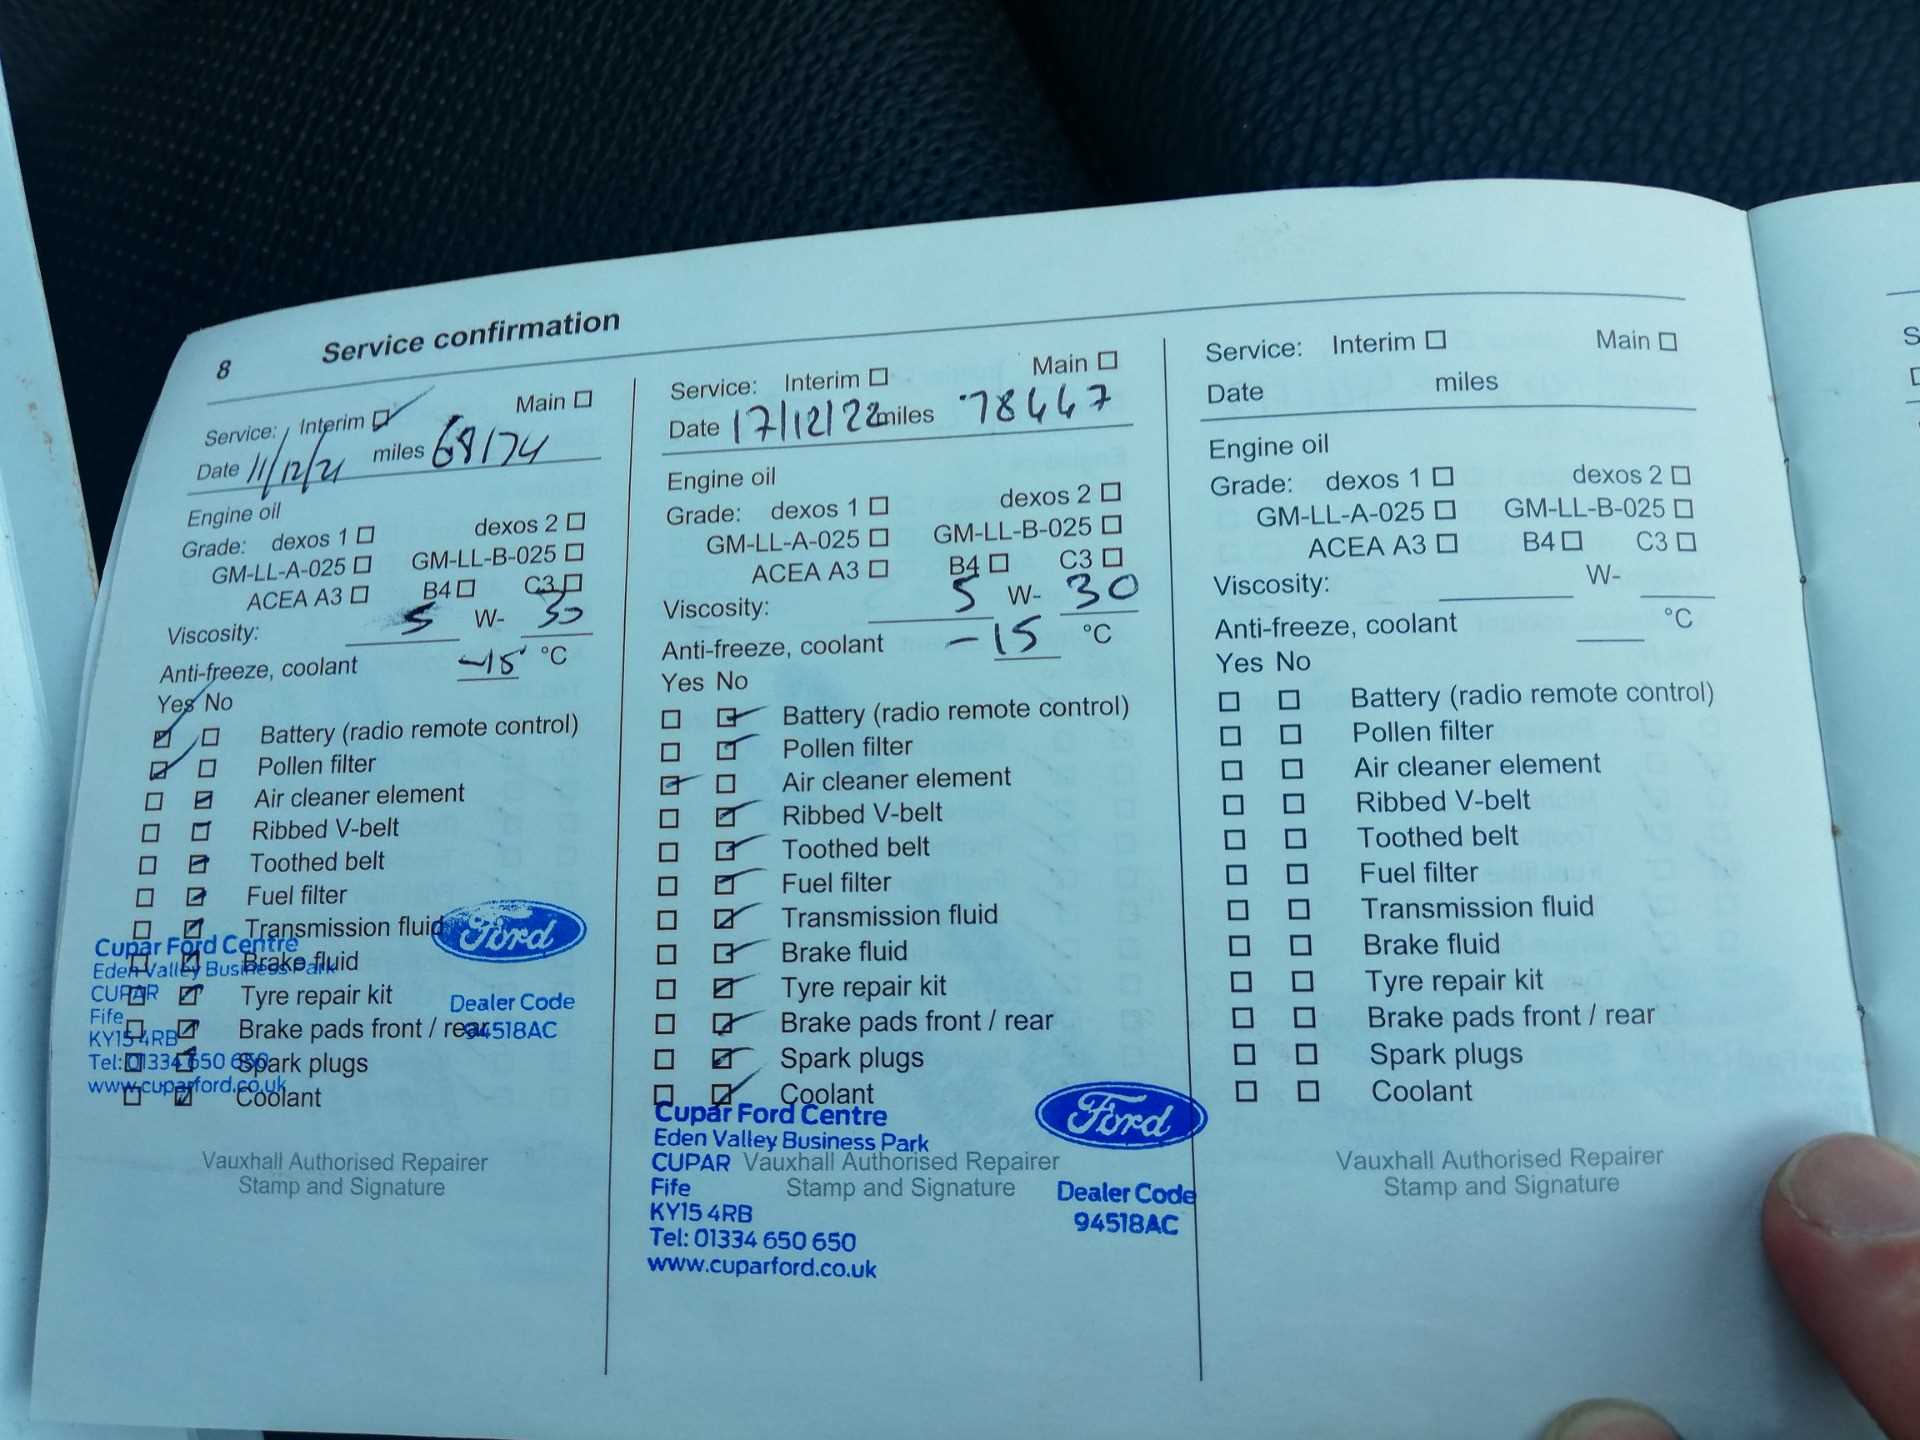 8 Service confirmation
Service: Interim Main
Date 11/12/21 miles 68174
Engine oil
Grade: dexos 1 dexos 2
GM-LL-A-025 GM-LL-B-025
ACEA A3 B4 C3
Viscosity: 5 W- 30
Anti-freeze, coolant -15 °C
Yes No
Battery (radio remote control)
Pollen filter
Air cleaner element
Ribbed V-belt
Toothed belt
Fuel filter
Transmission fluid
Brake fluid
Tyre repair kit
Brake pads front / rear
Spark plugs
Coolant
Cupar Ford Centre
Eden Valley Business Park
CUPAR
Fife
KY15 4RB
Tel: 01334 650 650
www.cuparford.co.uk
Ford
Dealer Code
94518AC
Vauxhall Authorised Repairer
Stamp and Signature
Service: Interim Main
Date 17/12/22 miles 78447
Engine oil
Grade: dexos 1 dexos 2
GM-LL-A-025 GM-LL-B-025
ACEA A3 B4 C3
Viscosity: 5 W- 30
Anti-freeze, coolant -15 °C
Yes No
Battery (radio remote control)
Pollen filter
Air cleaner element
Ribbed V-belt
Toothed belt
Fuel filter
Transmission fluid
Brake fluid
Tyre repair kit
Brake pads front / rear
Spark plugs
Coolant
Cupar Ford Centre
Eden Valley Business Park
CUPAR
Fife
KY15 4RB
Tel: 01334 650 650
www.cuparford.co.uk
Ford
Dealer Code
94518AC
Vauxhall Authorised Repairer
Stamp and Signature
Service: Interim Main
Date miles
Engine oil
Grade: dexos 1 dexos 2
GM-LL-A-025 GM-LL-B-025
ACEA A3 B4 C3
Viscosity: W-
Anti-freeze, coolant °C
Yes No
Battery (radio remote control)
Pollen filter
Air cleaner element
Ribbed V-belt
Toothed belt
Fuel filter
Transmission fluid
Brake fluid
Tyre repair kit
Brake pads front / rear
Spark plugs
Coolant
Vauxhall Authorised Repairer
Stamp and Signature